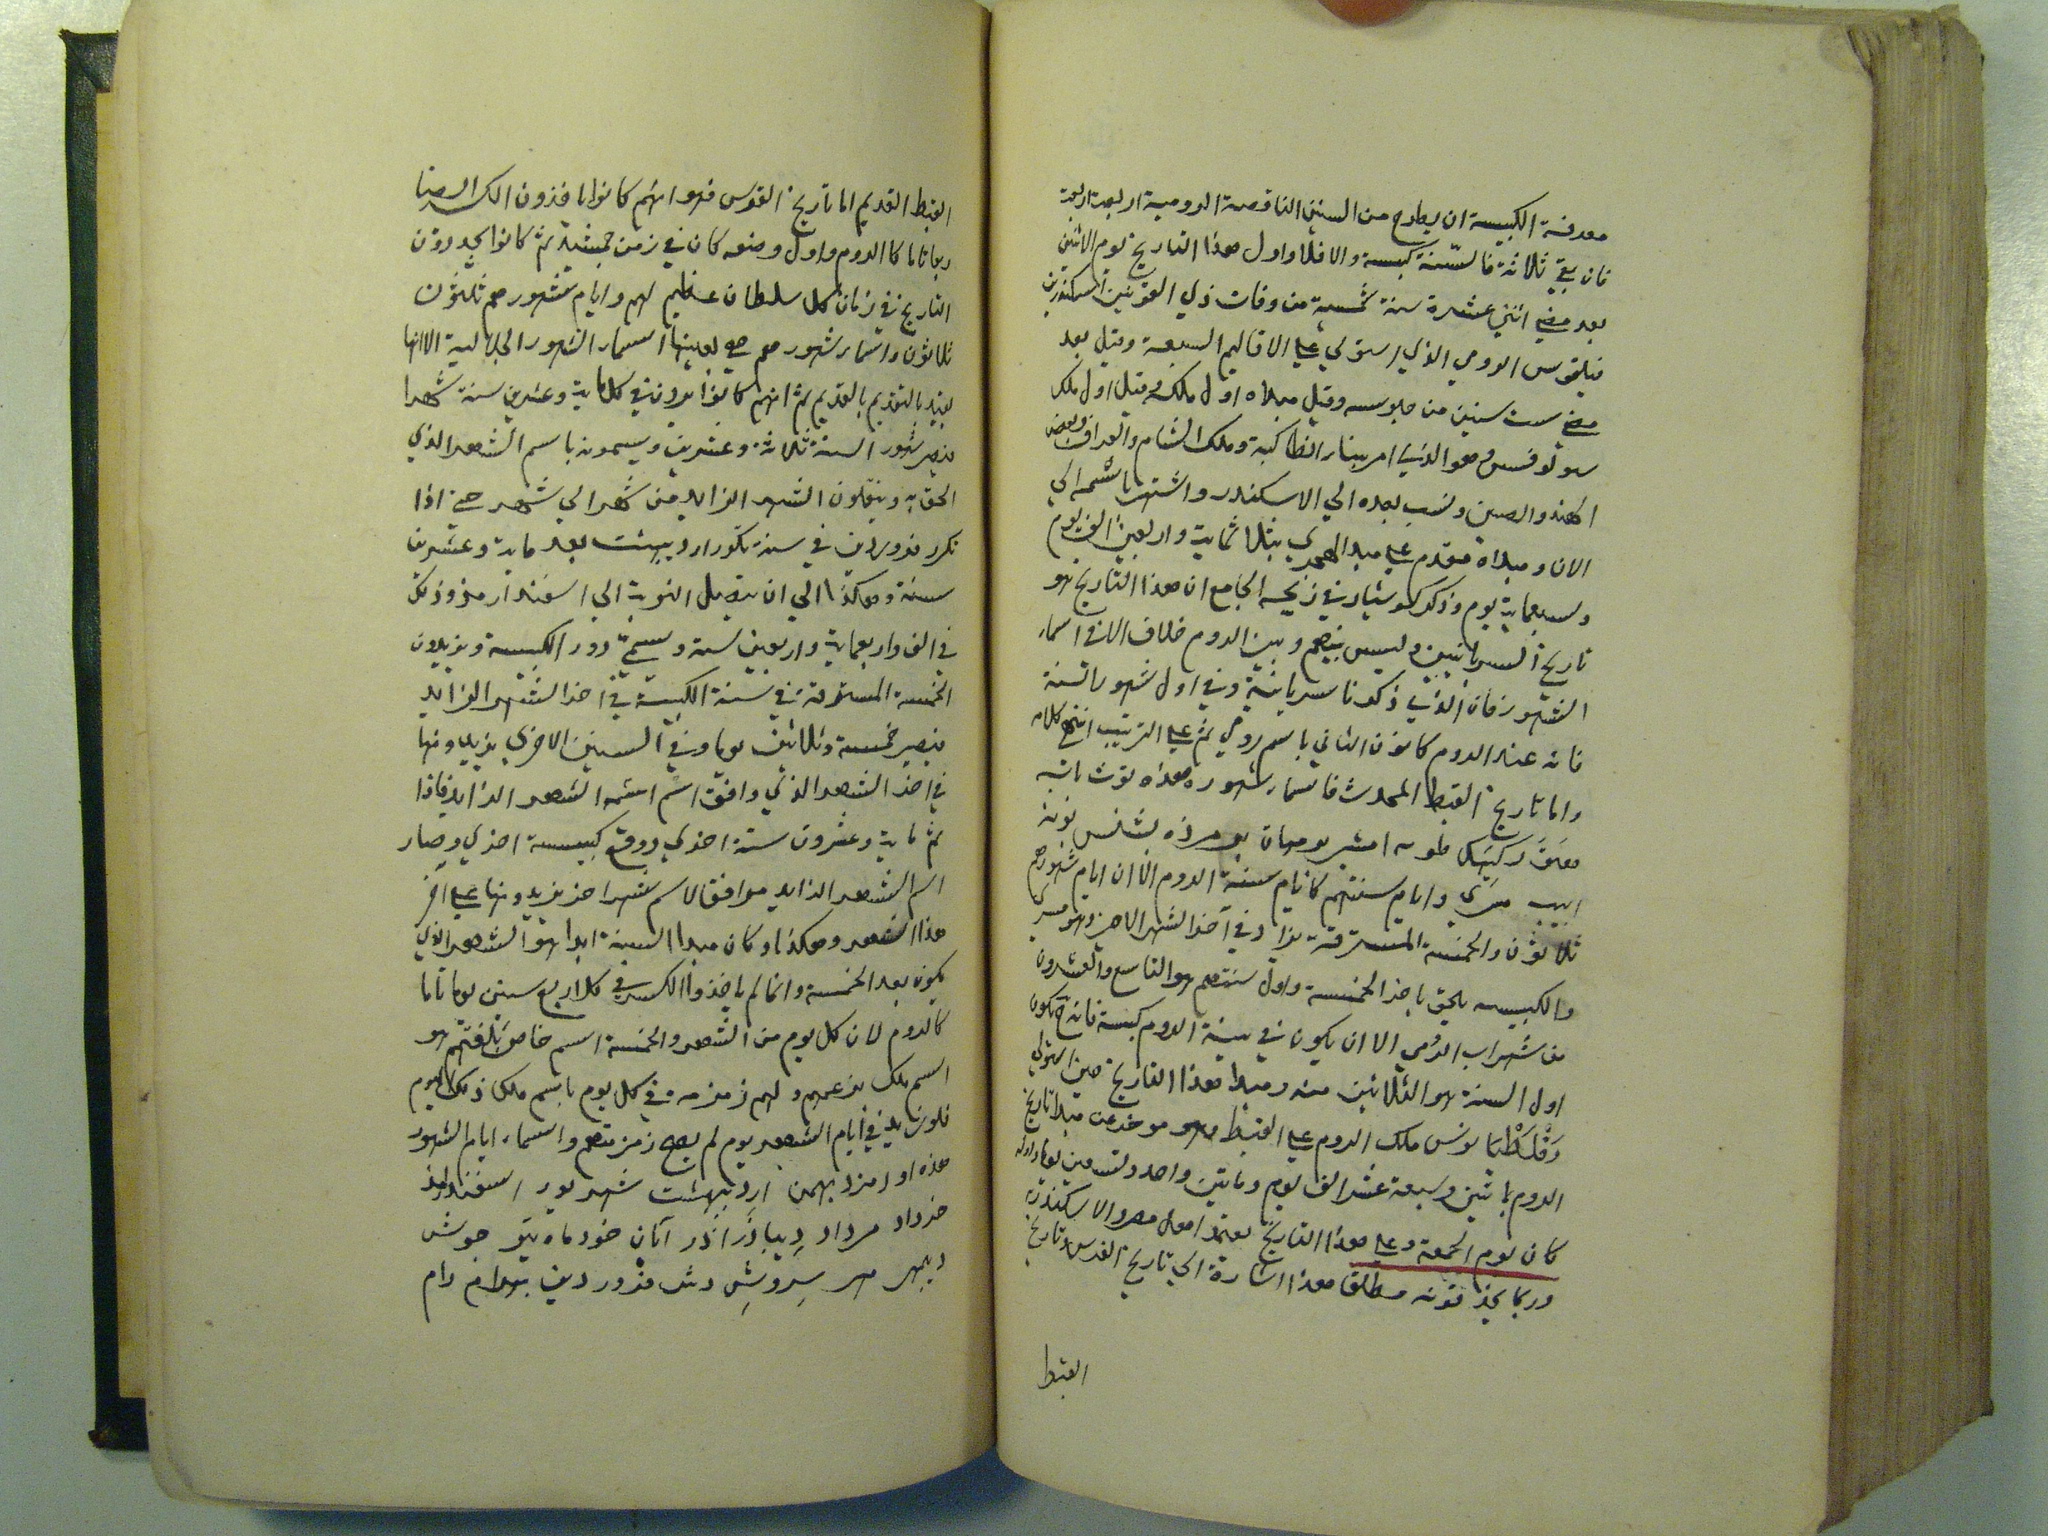 معرفة الكبيسة ان يطرح من السنين الناقصة الرومية اربعة اربعة
فان بقي ثلاثة فالسنة كبيسة والا فلا واول هذا التاريخ يوم الاثنين
بعد مضي اثنتي عشرة سنة شمسية من وفات ذي القرنين اسكندر بن
فيلقوس الرومي الذي استولي علي الاقاليم السبعة وقيل بعد
مضي ست سنين من جلوسه وقيل مبداه اول ملكه وقيل اول ملك
سولوقس وهو الذي امر ببناء انطاكية وملك الشام والعراق وبعض
الهند والصين ونسب بعده الي الاسكندر واشتهر باسمه الي
الان ومبداه مقدم علي مبدا الهجري بثلاثماية واربعين الف يوم
وسبعماية يوم وذكر كوشيار في زيجه الجامع ان هذا التاريخ هو
تاريخ السريانيين وليس بينهم وبين الروم خلاف الا في اسماء
الشهور فان الذي ذكرنا سريانية وفي اول شهور السنة
فانه عند الروم كانون الثاني باسم رومي ثم علي الترتيب انتهي كلامه
واما تاريخ القبط المحدث فاسماء شهوره هذه توت بابه
هتور كيهك طوبه امشير برمهات برموذه بشنس بونه
ابيب مسري وايام سنتهم كايام سنة الروم الا ان ايام شهورهم
ثلاثون والخمسة المسترقة تزاد في آخر الشهر الاخر وهو مسري
والكبيسه يلحق باخر الخمسة واول سنتهم هو التاسع والعشرون
من شهر اب الرومي الا ان يكون في سنة الروم كبيسة فانه ح يكون
اول السنة هو الثلاثين منه ومبدا هذا التاريخ حين استولي
دقلطيانوس ملك الروم علي القبط وهو موخر عن مبدا تاريخ
الروم بمايتين وسبعة عشر الف يوم ومايتين واحد وتسعين يوما واوله
كان يوم الجمعة وعلي هذا التاريخ يعتمد اهل مصر والاسكندرية
وربما يجذفونه مطلقا هذا اشارة الي تاريخ الفرس وتاريخ
القبط
القبط القديم اما تاريخ الفرس فهو انهم كانوا ياخذون الكسر ايضا
ربعا تاما كالروم واول وضعه كان في زمن جمشيد ثم كانوا يجددون
التاريخ في زمان كل سلطان عظيم لهم وايام شهورهم ثلثون
ثلاثون واسماء شهورهم هي بعينها اسماء الشهور الجلالية الا انها
يقيد بالقديم ثم انهم كانوا يزيدون في كل ماية وعشرين سنة شهرا
فيصير شهور السنة ثلاثة وعشرين ويسمونه باسم الشهر الذي
الحق به وينقلون الشهر الزايد من شهر الي شهر حتي اذا
تكرر فروردين في سنة تكرر ارديبهشت بعد ماية وعشرين
سنة وهكذا الي ان يصل النوبة الي اسفندارمذ وذلك
في الف واربعماية واربعين سنة وسمي دور الكبيسة ويزيدون
الخمسة المسترقة في سنة الكبيسة في اخر الشهر الزايد
فيصير خمسة وثلاثين يوما وفي السنين الاخري يزيدونها
في اخر الشهر الذي وافق اسم اسمه الشهر الزايد فاذا
تم ماية وعشرون سنة اخري ووقع كبيسة اخري وصار
اسم الشهر الزايد موافقا لاسم شهر اخر يزيدونها علي اخر
هذا الشهر وهكذا وكان مبدا السنة ابدا هو الشهر الذي
يكون بعد الخمسة وانما لم ياخذوا الكسر في كل اربع سنين يوما تاما
كالروم لان كل يوم من الشهر والخمسة اسم خاص بلغتهم هو
اسم ملك بزعمهم ولهم زمزمه في كل يوم باسم ملك ذلك اليوم
فلو زيد في ايام الشهر يوم لم يصح زمزمتهم واسماء ايام الشهور
هذه اورمزد بهمن ارديبهشت شهريور اسفندارمذ
خرداد مرداد ديباذر اذر آبان خور ماه تير جوش
ديبمهر مهر سروش رش فروردين بهرام رام